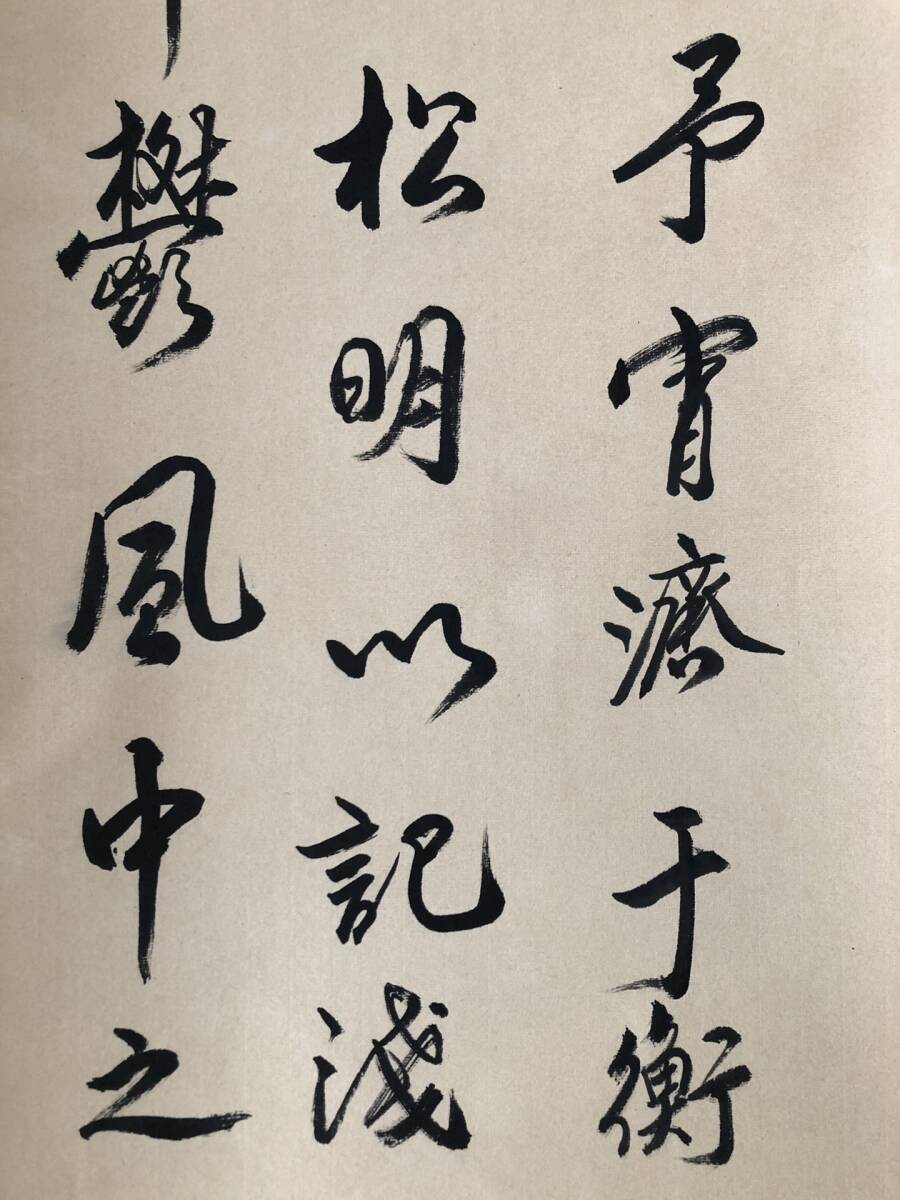 予宵濟于衡
松明以記淺
鬱風中之